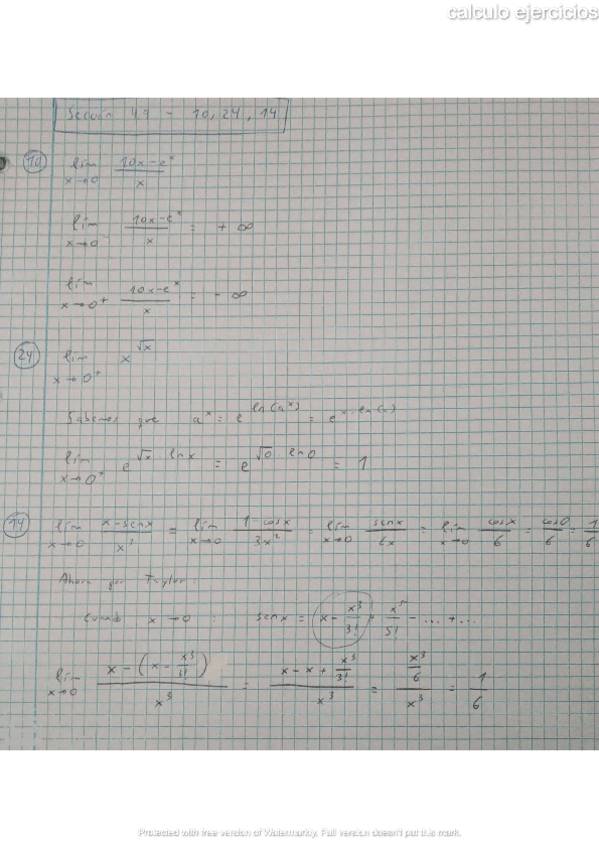 calculo ejercicios
Sección 4.7 - 10, 24, 14
10 lim x→0 (10x-e^x)/x
lim x→0^- (10x-e^x)/x = +∞
lim x→0^+ (10x-e^x)/x = -∞
24 lim x→0^+ x^√x
Sabemos que a^x = e^ln(a^x) = e^x·ln(x)
lim x→0^+ e^√x·lnx = e^√0·ln0 = 1
14 lim x→0 (x-senx)/x^3 = lim x→0 (1-cosx)/3x^2 = lim x→0 senx/6x = lim x→0 cosx/6 = cos0/6 = 1/6
Ahora por Taylor:
Cuando x→0 : senx = x - x^3/3! + x^5/5! - ... + ...
lim x→0 (x-(x-x^3/3!))/x^3 = (x-x+x^3/3!)/x^3 = (x^3/6)/x^3 = 1/6
Protected with free version of Watermarkly. Full version doesn't put this mark.